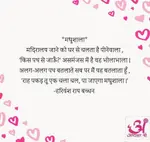 "मधुशाला"
मदिरालय जाने को घर से चलता है पीनेवाला ,
'किस पथ से जाऊँ?' असमंजस में है वह भोलाभाला।
अलग-अलग पथ बतलाते सब पर मैं यह बतलाता हूँ ,
'राह पकड़ तू एक चला चल, पा जाएगा मधुशाला।'
-हरिवंश राय बच्चन